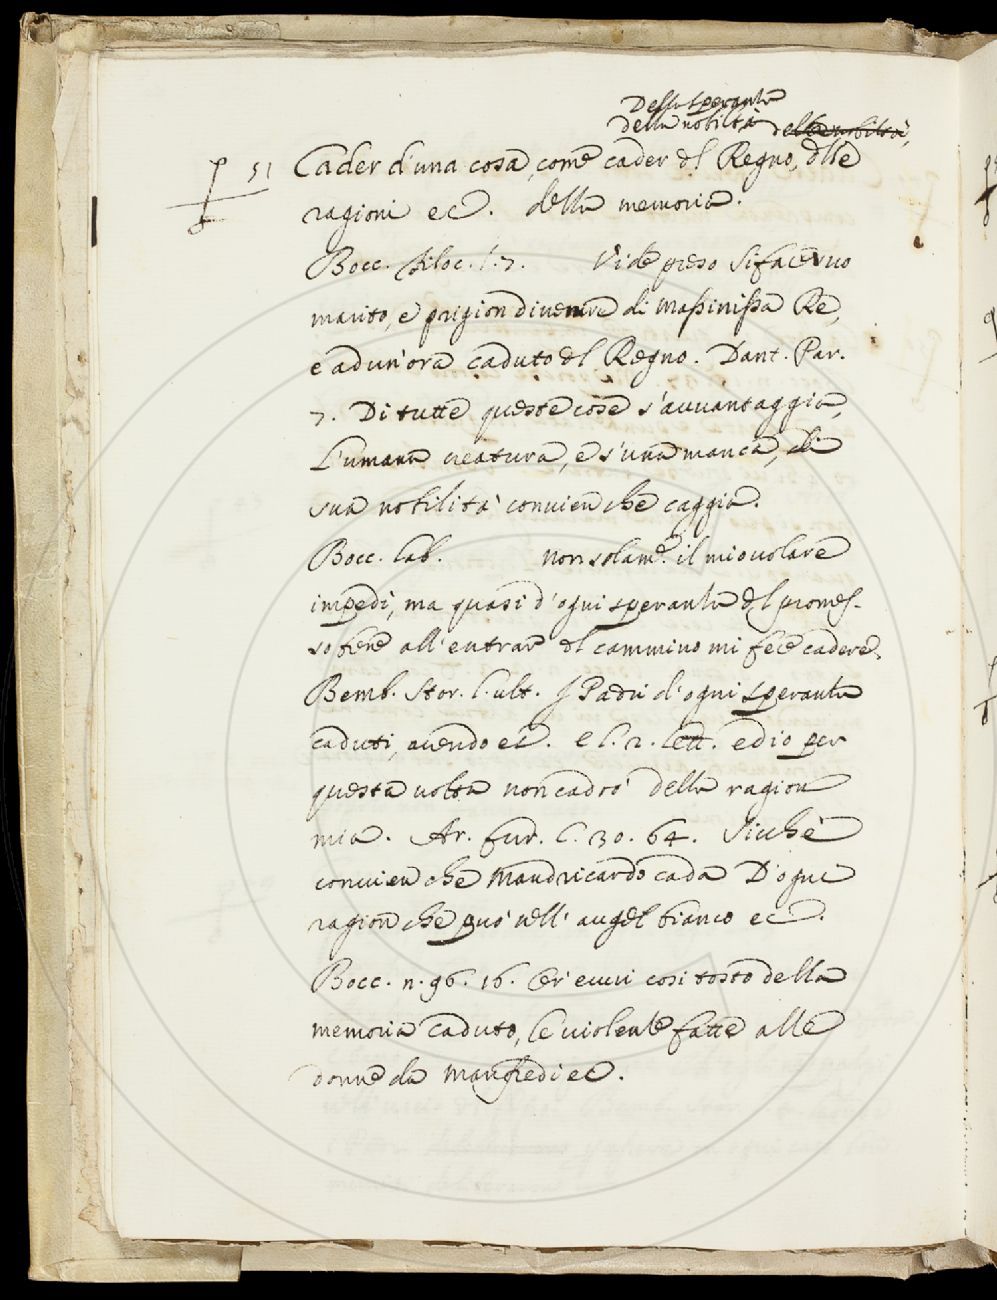 Della speranza
della nobiltà della nobiltà,
51 Cader d'una cosa, come cader del Regno, delle
ragioni ec. della memoria.
Bocc. filoc. l. 7. Vide preso Siface suo
marito, e prigion divenire di Massinissa Re,
e ad un'ora caduto del Regno. Dant. Par.
7. Di tutte queste cose s'avvantaggia,
L'umana creatura, e s'una manca, di
sua nobilità convien che caggia.
Bocc. lab. non solam.e il mio volare
impedì, ma quasi d'ogni speranza del promes-
so bene all'entrar del cammino mi fece cadere.
Bemb. Stor. l. ult. I Padri d'ogni speranza
caduti, avendo ec. e l. 2. lett. ed io per
questa volta non cadrò della ragion
mia. Ar. fur. C. 30. 64. Sicchè
convien che Mandricardo cada D'ogni
ragion che può nell'augel bianco ec.
Bocc. n. 96. 16. Or' evvi così tosto della
memoria caduto, le violente fatte alle
donne da Manfredi ec.